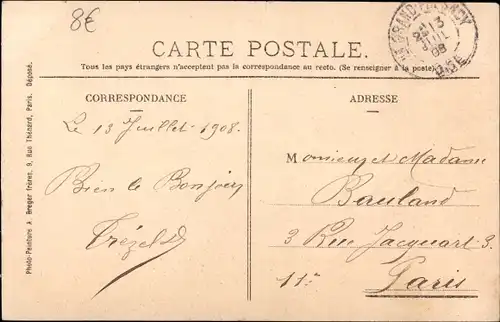 8€
CARTE POSTALE.
Tous les pays étrangers n'acceptent pas la correspondance au recto. (Se renseigner à la poste).
CORRESPONDANCE
Le 13 Juillet 1908.
Bien le Bonjour
Trézel
ADRESSE
Monsieur et Madame
Bauland
3 Rue Jacquart 3.
11e
Paris
13
JUIL
08
Photo-Peinture A Breger frères, 9, Rue Thénard, Paris. Déposé.